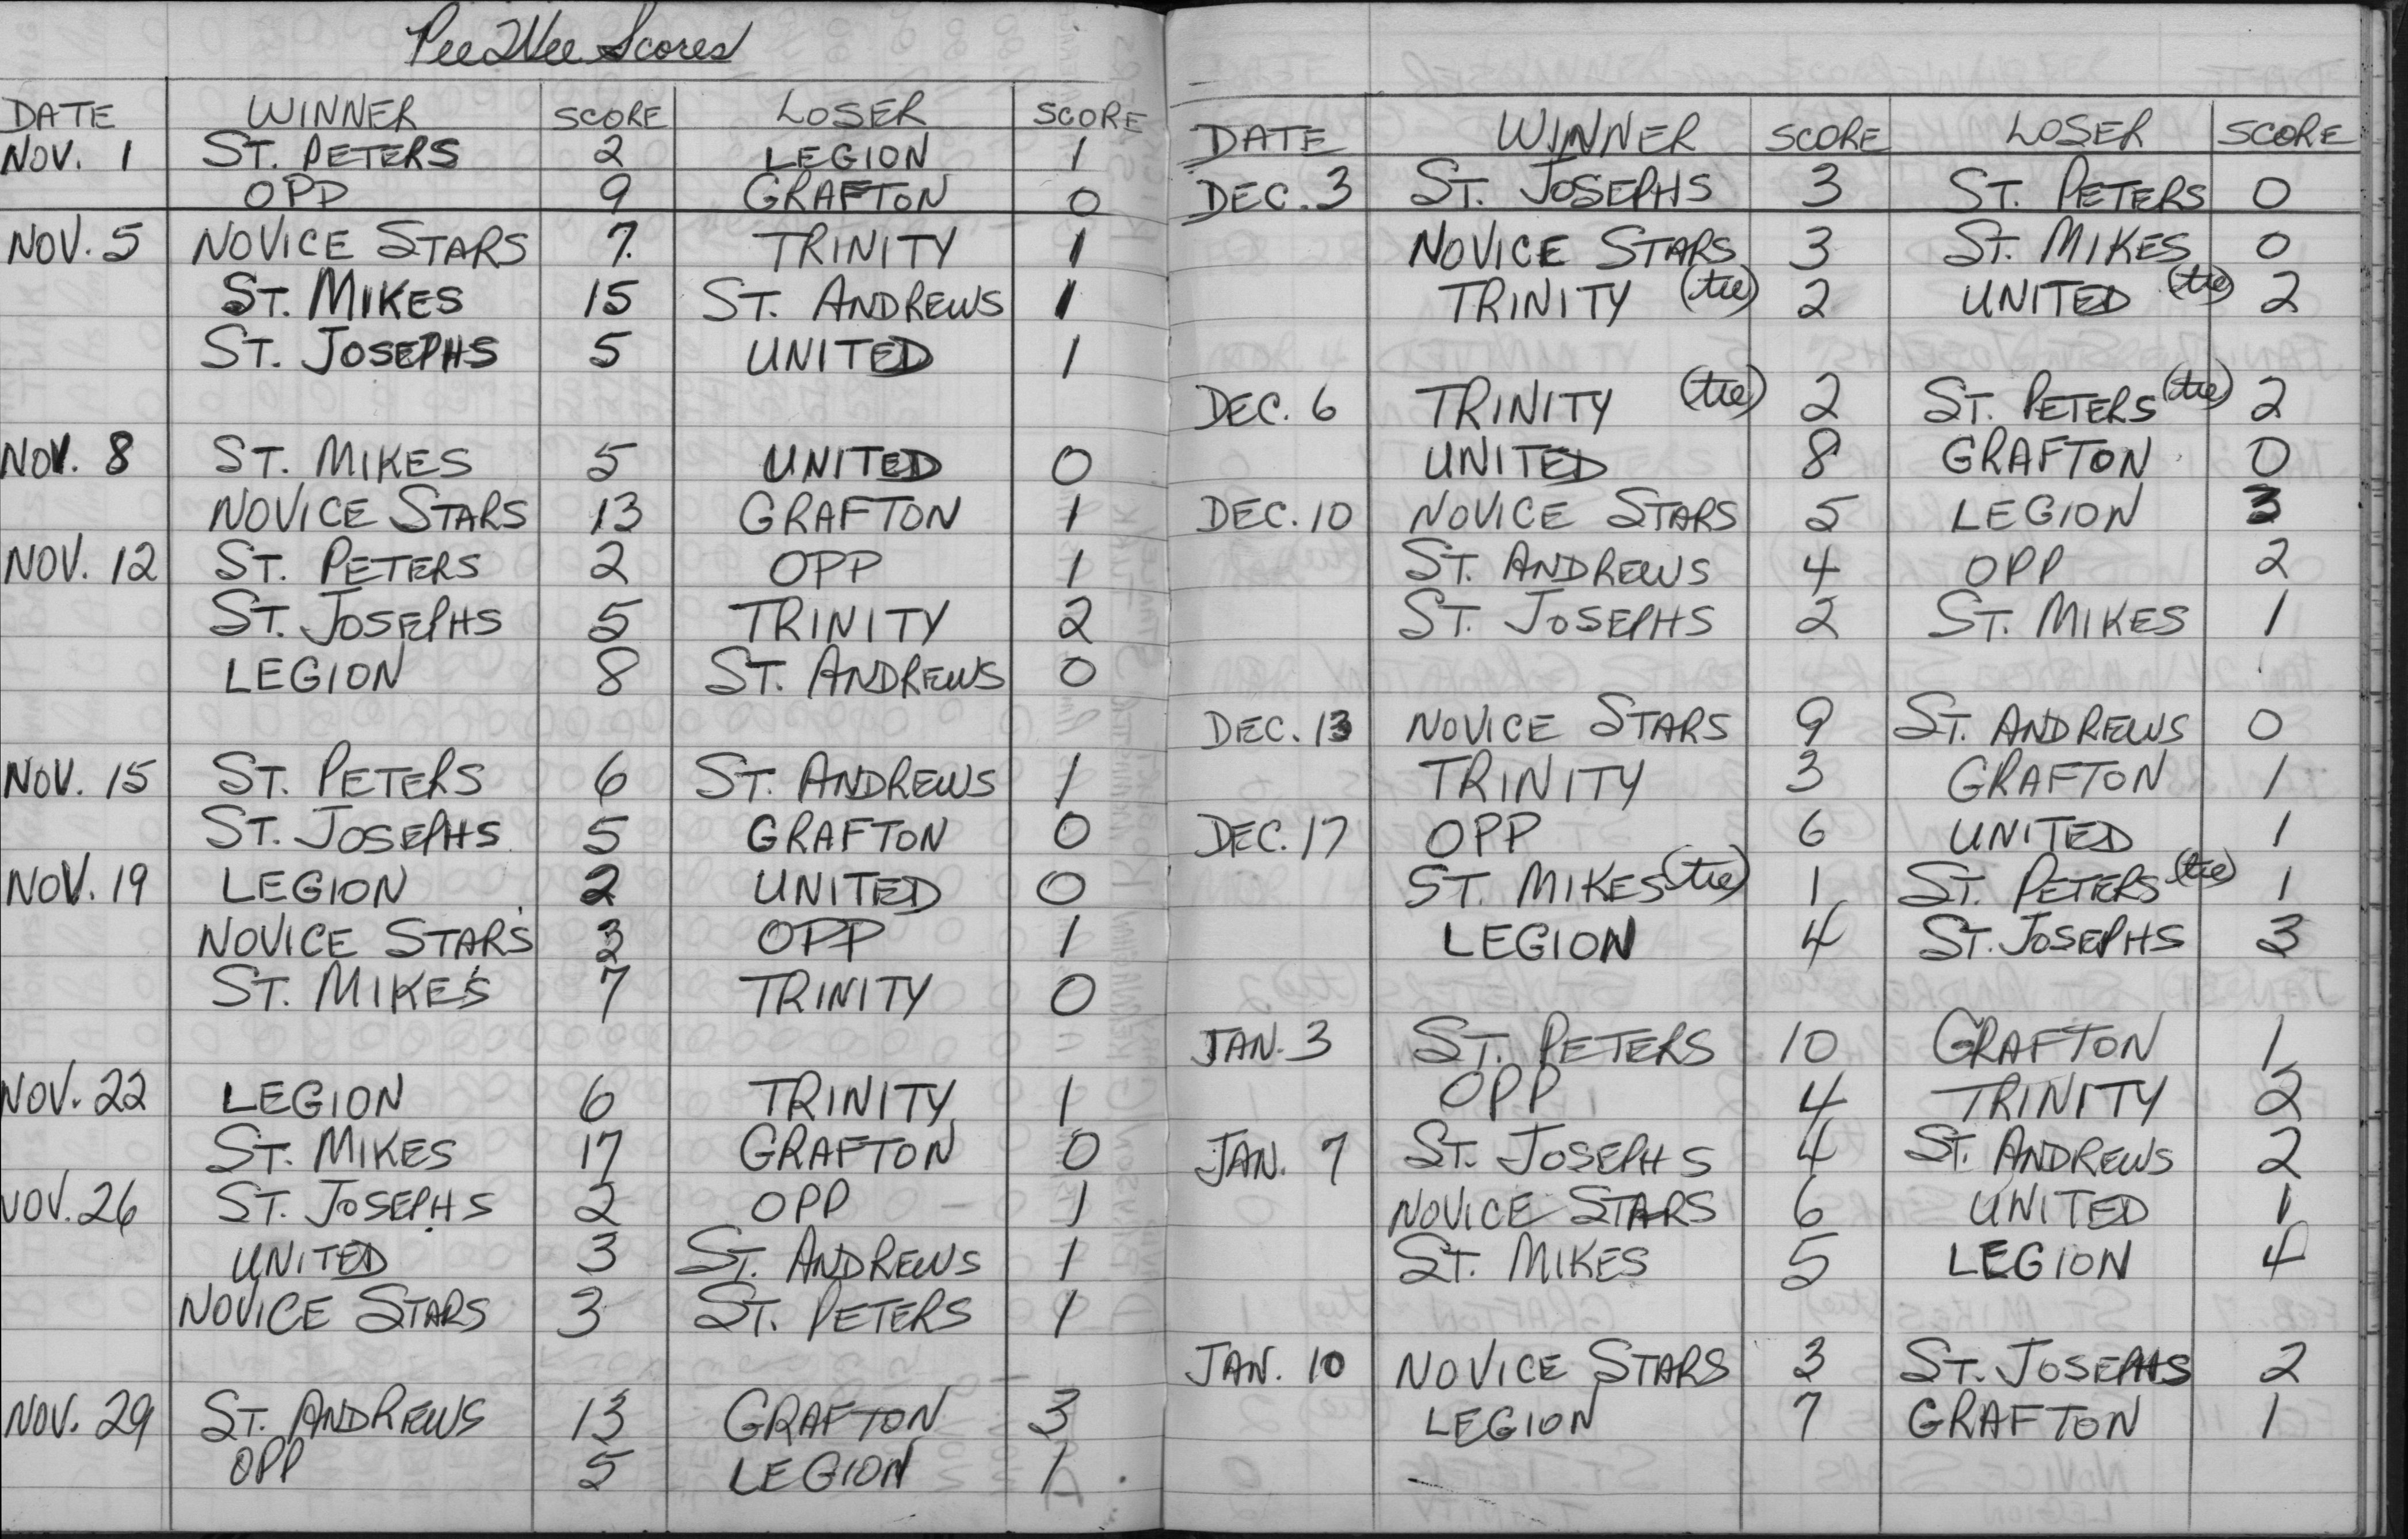 PeeWee Scores
DATE WINNER SCORE LOSER SCORE
NOV. 1 ST. PETERS 2 LEGION 1
OPP 9 GRAFTON 0
NOV. 5 NOVICE STARS 7 TRINITY 1
ST. MIKES 15 ST. ANDREWS 1
ST. JOSEPHS 5 UNITED 1
NOV. 8 ST. MIKES 5 UNITED 0
NOVICE STARS 13 GRAFTON 1
NOV. 12 ST. PETERS 2 OPP 1
ST. JOSEPHS 5 TRINITY 2
LEGION 8 ST. ANDREWS 0
NOV. 15 ST. PETERS 6 ST. ANDREWS 1
ST. JOSEPHS 5 GRAFTON 0
NOV. 19 LEGION 2 UNITED 0
NOVICE STARS 3 OPP 1
ST. MIKES 7 TRINITY 0
NOV. 22 LEGION 6 TRINITY 1
ST. MIKES 17 GRAFTON 0
NOV. 26 ST. JOSEPHS 2 OPP 1
UNITED 3 ST. ANDREWS 1
NOVICE STARS 3 ST. PETERS 1
NOV. 29 ST. ANDREWS 13 GRAFTON 3
OPP 5 LEGION 1
DATE WINNER SCORE LOSER SCORE
DEC. 3 ST. JOSEPHS 3 ST. PETERS 0
NOVICE STARS 3 ST. MIKES 0
TRINITY (tie) 2 UNITED (tie) 2
DEC. 6 TRINITY (tie) 2 ST. PETERS (tie) 2
UNITED 8 GRAFTON 0
DEC. 10 NOVICE STARS 5 LEGION 3
ST. ANDREWS 4 OPP 2
ST. JOSEPHS 2 ST. MIKES 1
DEC. 13 NOVICE STARS 9 ST. ANDREWS 0
TRINITY 3 GRAFTON 1
DEC. 17 OPP 6 UNITED 1
ST. MIKES (tie) 1 ST. PETERS (tie) 1
LEGION 4 ST. JOSEPHS 3
JAN. 3 ST. PETERS 10 GRAFTON 1
OPP 4 TRINITY 2
JAN. 7 ST. JOSEPHS 4 ST. ANDREWS 2
NOVICE STARS 6 UNITED 1
ST. MIKES 5 LEGION 4
JAN. 10 NOVICE STARS 3 ST. JOSEPHS 2
LEGION 7 GRAFTON 1